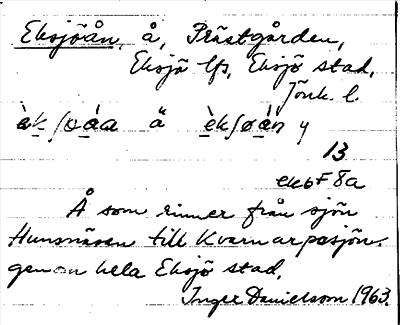 Eksjöån, å, Prästgården,
Eksjö lfs, Eksjö stad,
Jönk. l.
ä
13
ek6F8a
Å som rinner från sjön
Hunsnäsen till Kvarnarpasjön
genom hela Eksjö stad.
Inger Danielsson 1963.